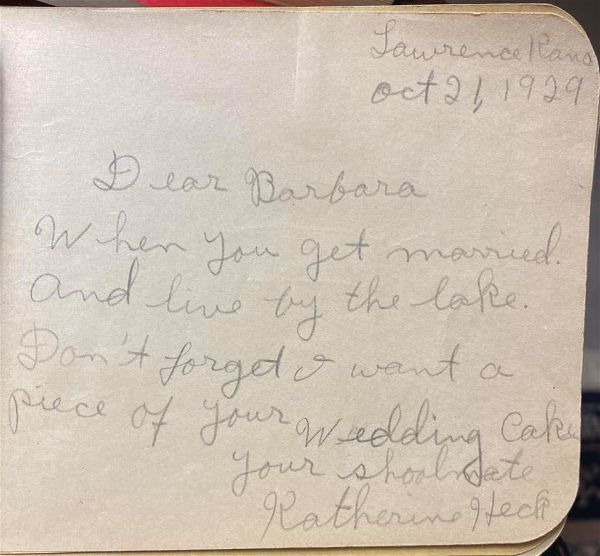 Lawrence Kans
Oct 21, 1929
Dear Barbara
When you get married.
And live by the lake.
Don't forget I want a
piece of your Wedding Cake
your shoolmate
Katherine Heck